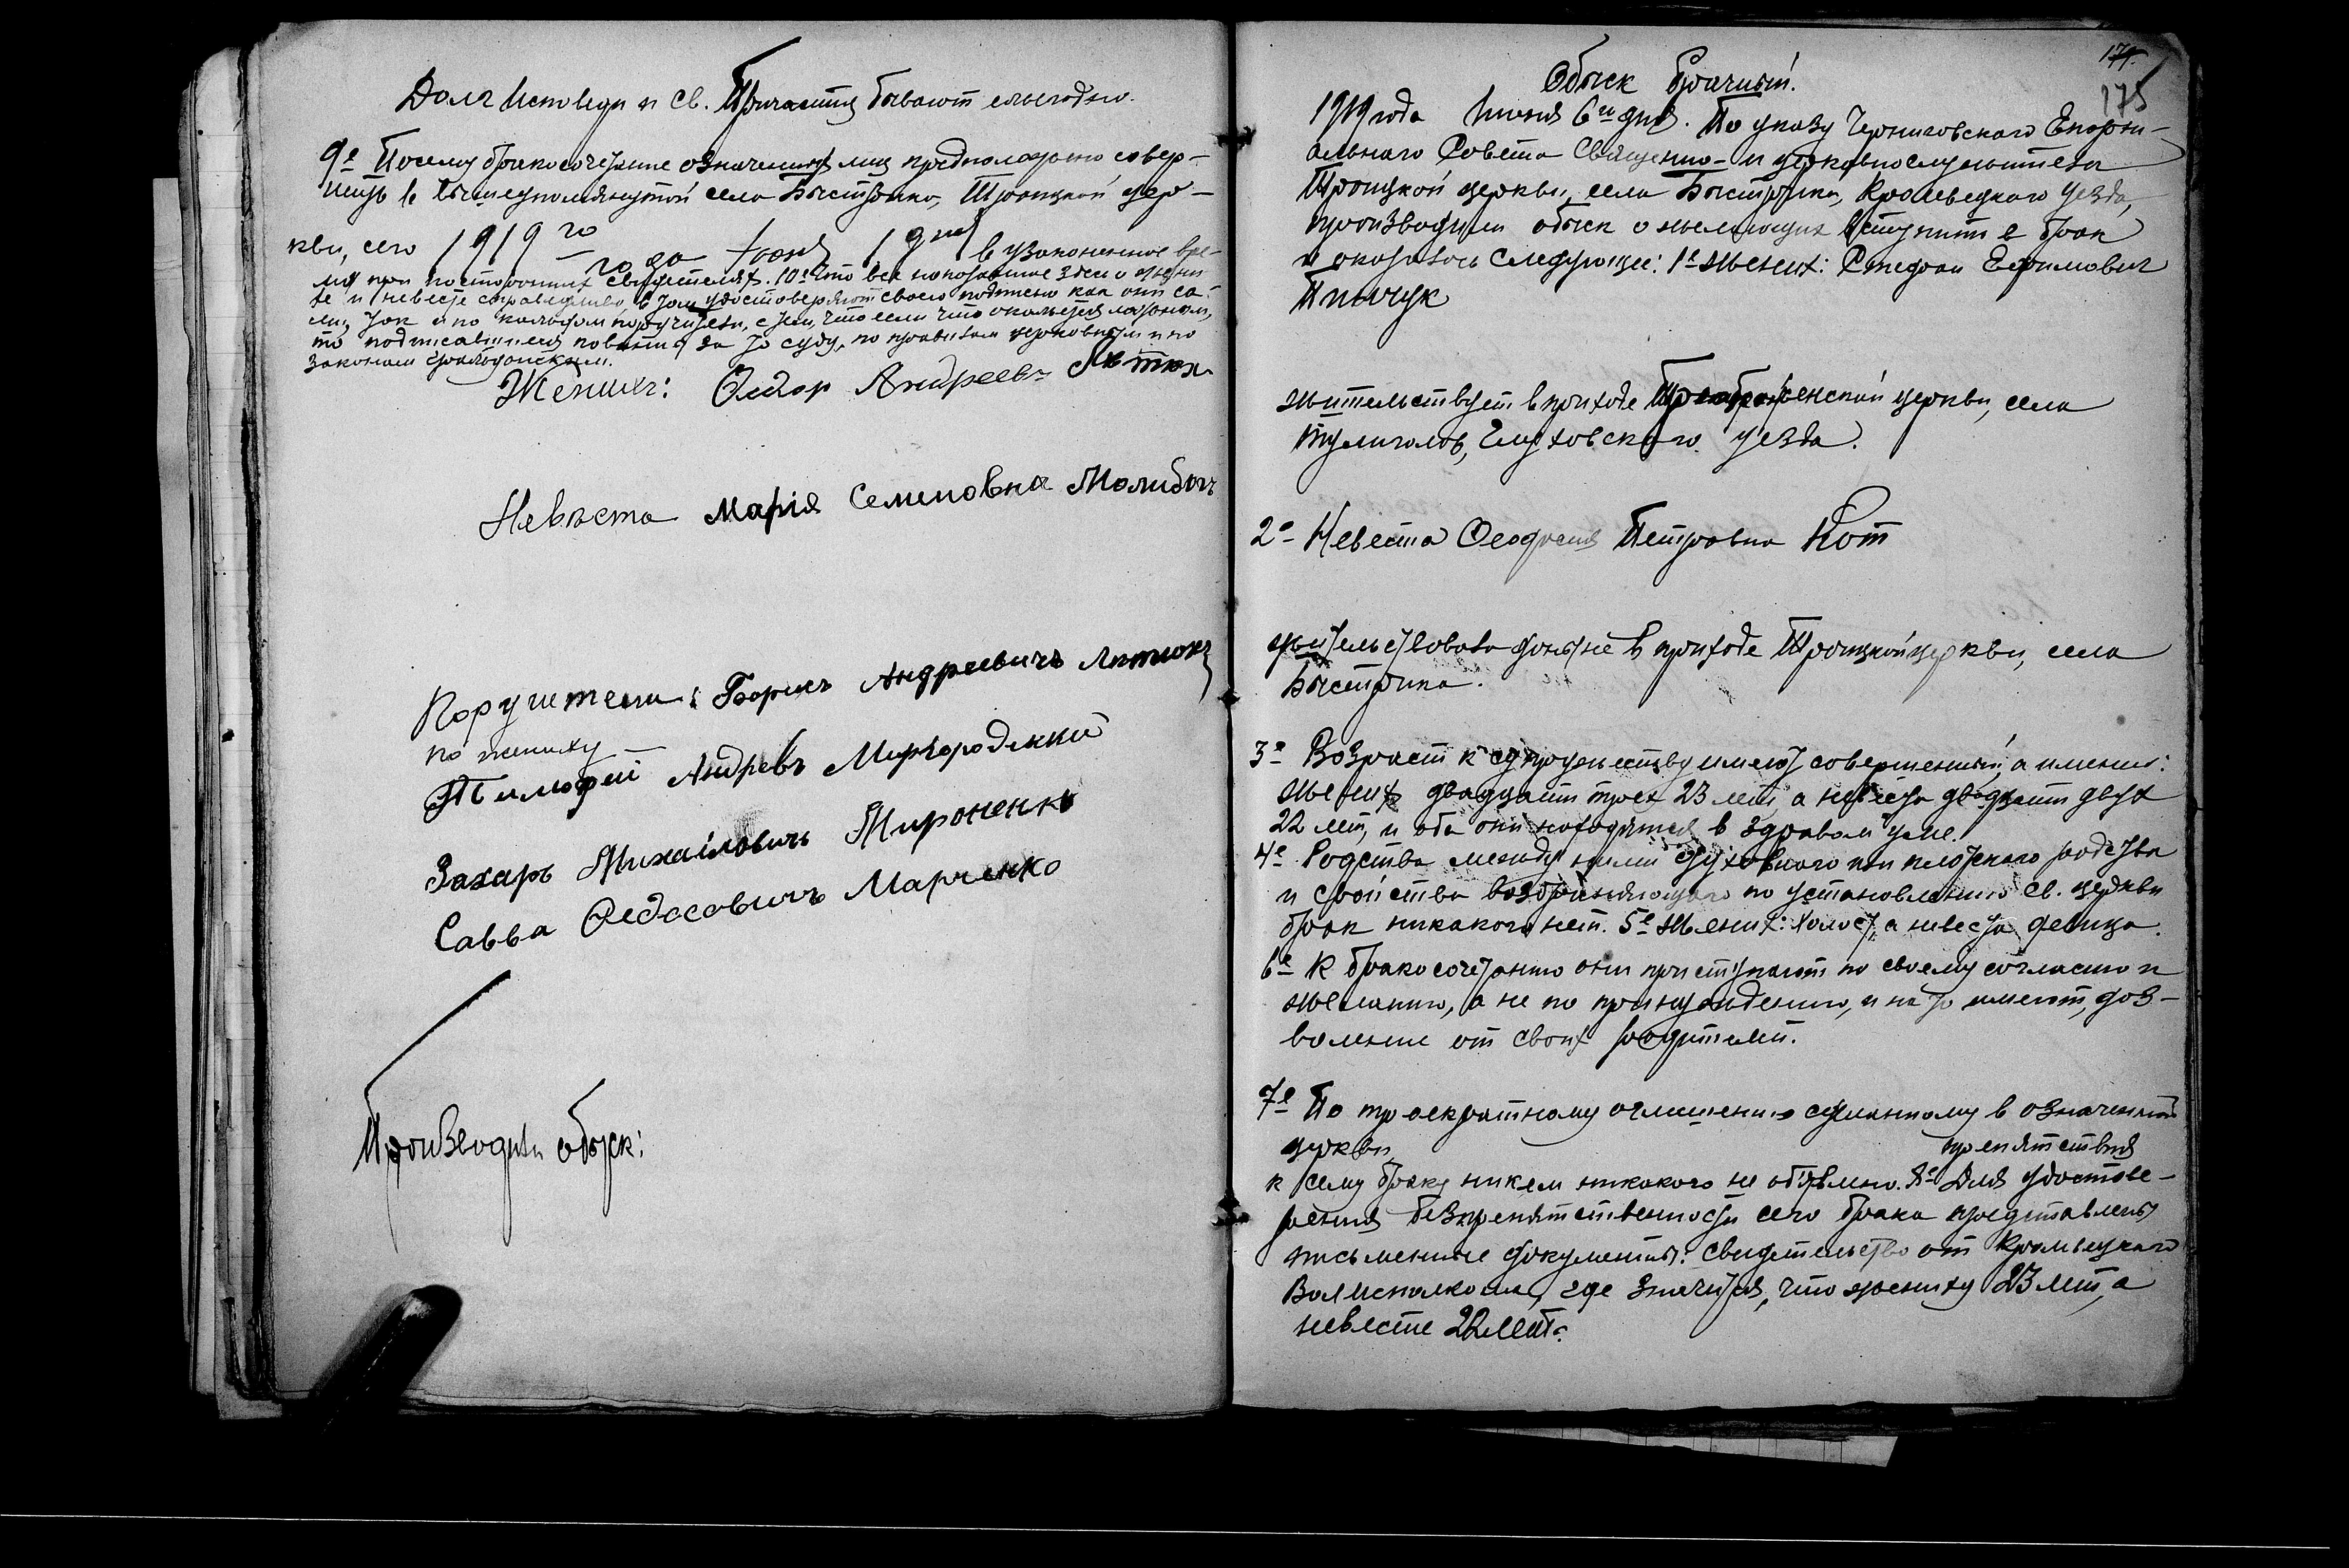 Долг Исповеди и Св. Причастия бывают ежегодно.
9е Посему бракосочетание означенных лиц предположено совер-
шить в вышеупомянутой села Быстрика, Троицкой цер-
кви, сего 1919го года Июня 1 дня в узаконенное вре-
мя при посторонних свидетелях. 10е Что все показанное здесь о жени-
хе и невесте справедливо, в том удостоверяют своею подписью как они са-
ми, так и по каждом поручители, с тем, что если что окажется ложным,
то подписавшиеся повинны за то суду, по правилам церковным и по
законам гражданским.
Женихъ: Федор Андреевъ
Невѣста Марія Семеновна
Поручители: Борисъ Андреевичъ
по жениху
Тимофей Андревъ Миргородский
Захаръ Михайловичъ Мироненко
Савва Федосовичъ Марченко
Производили обыск:
174.
175
Обыск брачный.
1919 года Июня 6го дня. По указу Черниговского Епархи-
ального Совета Священно- и церковнослужители
Троицкой церкви, села Быстрика, Кролевецкого уезда,
производили обыск о желающих вступить в брак
и оказалось следующее: 1е Жених: Стефан Ефимович
жительствует в приходе Преображенской церкви, села
Тулиголов, Глуховского уезда.
2е Невеста Феодосия Петровна Кот
жительствовала доныне в приходе Троицкой церкви, села
Быстрика.
3е Возраст к супружеству имеют совершенный, а именно:
жених двадцати трех 23 лет, а невеста двадцати двух
22 лет, и оба они находятся в здравом уме.
4е Родства между ними духовного или плотского родства
и свойства возбраняющего по установлению св. церкви
брак никакого нет. 5е Жених: холост, а невеста девица.
6е К бракосочетанию они приступают по своему согласию и
желанию, а не по принуждению, и на то имеют, доз-
воление от своих родителей.
7е По троекратному оглашению сделанному в означенной
церкви, препятствия
к сему браку никем никакого не объявлено. 8е Для удостове-
рения безпрепятственности сего брака представлены
письменные документы: свидетельство от Кролевецкого
Волисполкома, где значится, что жениху 23 лет, а
невесте 22 лет.